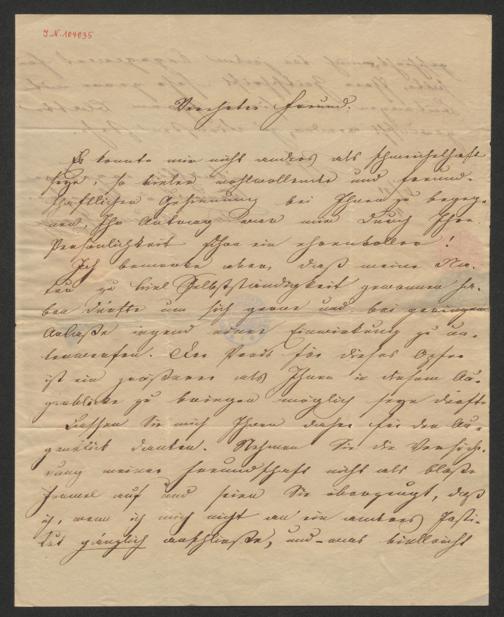 J.N. 104035
Verehrter Freund.
Es konnte mir nicht anders als schmeichelhaft
seyn, so vieler wohlwollender und freund-
schaftlichen Gesinnung bei Ihnen zu begeg-
nen, Ihr Antrag war mir durch Ihre
Persönlichkeit schon ein ehrenvoller!
Ich bemerke aber, daß meine Na-
tur zu viel Selbstständigkeit gewonnen ha-
ben dürfte um sich gerne und bei geringem
Anlaße irgend einer Einwirkung zu un-
terwerfen. Der Preis für dieses Opfer
ist ein größerer als Ihnen in diesem Au-
genblicke zu bringen möglich seyn dürfte
Lassen Sie mich Ihnen daher für den Au-
genblick danken. Nehmen Sie die Versiche-
rung meiner Freundschaft nicht als bloße
Formel auf und seien Sie überzeugt, daß
ich, wenn ich mich nicht an ein anderes Insti-
tut gänzlich anschließe, und was vielleicht